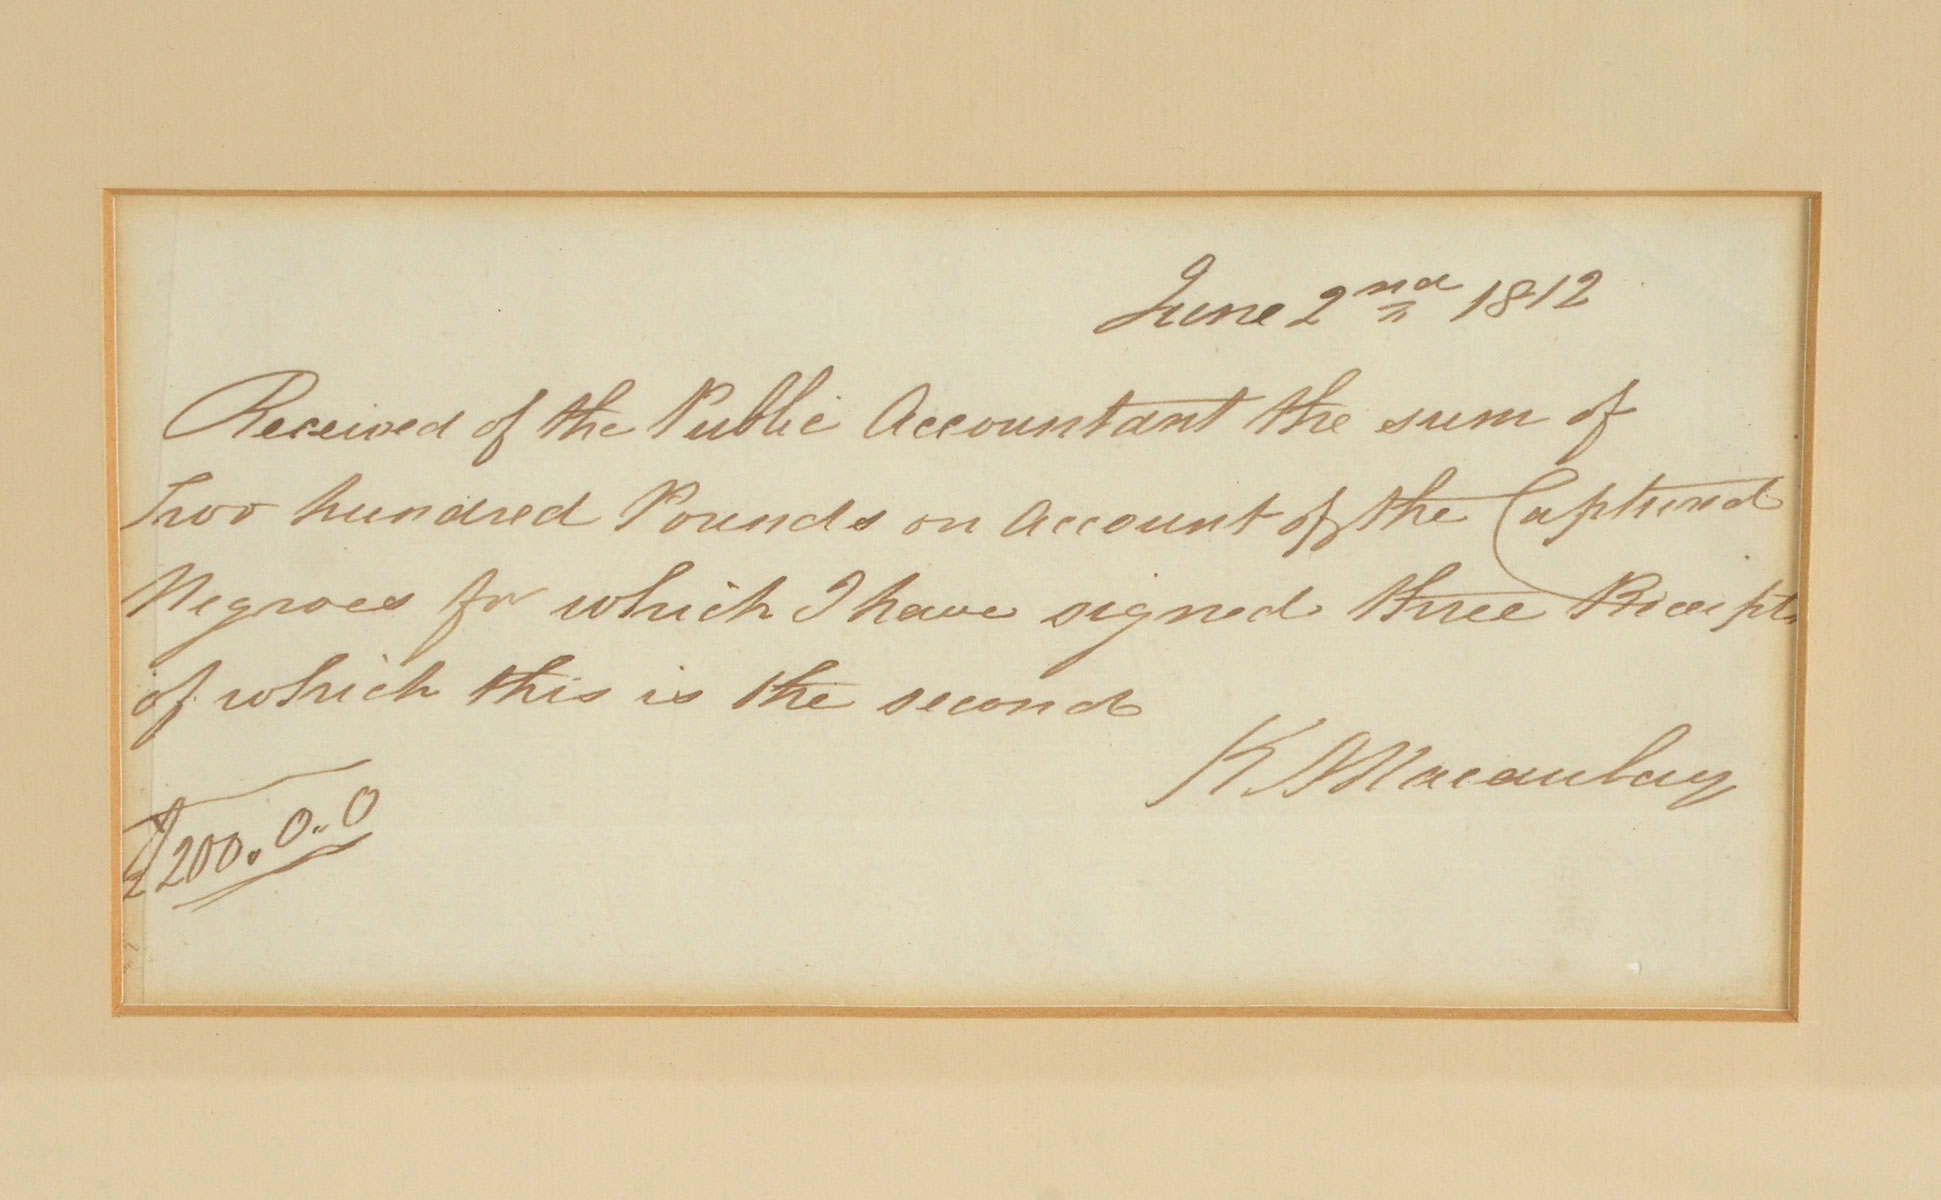 June 2nd 1812
Received of the Public Accountant the sum of
Two hundred Pounds on Account of the Captured
Negroes for which I have signed three Receipts
of which this is the second
K Macaulay
£200.0.0